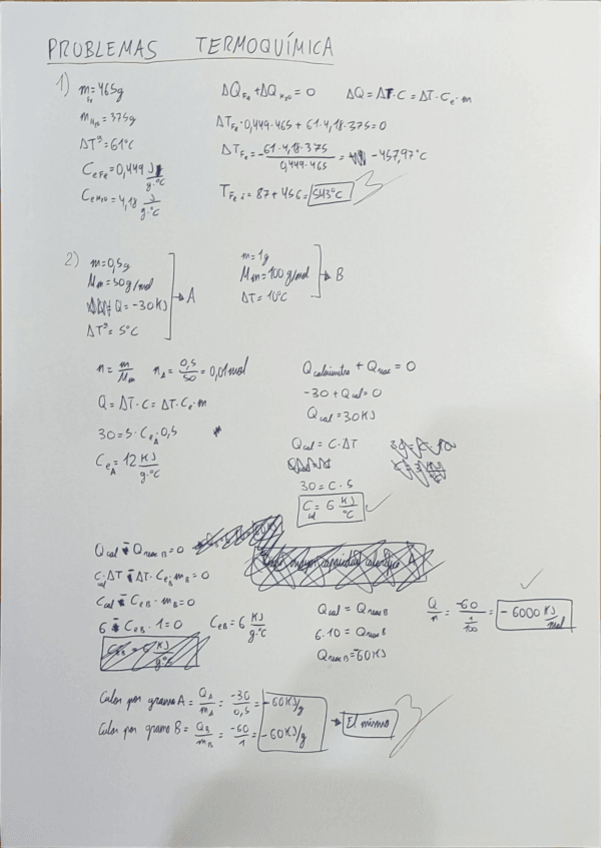 PROBLEMAS TERMOQUÍMICA
1) m_Fe = 465g
m_H₂O = 375g
ΔT = 61°C
Ce_Fe = 0,449 J/g·°C
Ce_H₂O = 4,18 J/g·°C
ΔQ_Fe + ΔQ_H₂O = 0 ΔQ = ΔT·C = ΔT·Ce·m
ΔT_Fe·0,449·465 + 61·4,18·375 = 0
ΔT_Fe = -61·4,18·375/0,449·465 = -457,97°C
T_Fe i = 87 + 456 = 543°C
2) m = 0,5g
Mm = 50g/mol
Q = -30KJ
ΔT = 5°C
→ A
m = 1g
Mm = 100g/mol
ΔT = 10°C
→ B
n = m/Mm n_A = 0,5/50 = 0,01mol
Q = ΔT·C = ΔT·Ce·m
30 = 5·Ce_A·0,5
Ce_A = 12 KJ/g·°C
Q calorímetro + Q reac = 0
-30 + Qcal = 0
Qcal = 30KJ
Qcal = C·ΔT
30 = C·5
C_cal = 6 KJ/°C
Qcal - Qreac B = 0
C_cal·ΔT - ΔT·Ce_B·m_B = 0
Ccal - Ce_B·m_B = 0
6 - Ce_B·1 = 0 Ce_B = 6 KJ/g·°C
Qcal = Qreac B
6·10 = Qreac B
Qreac B = -60KJ
Q/n = -60/(1/100) = -6000 KJ/mol
Calor por gramo A = Q_A/m_A = -30/0,5 = -60KJ/g
Calor por gramo B = Q_B/m_B = -60/1 = -60KJ/g
→ El mismo